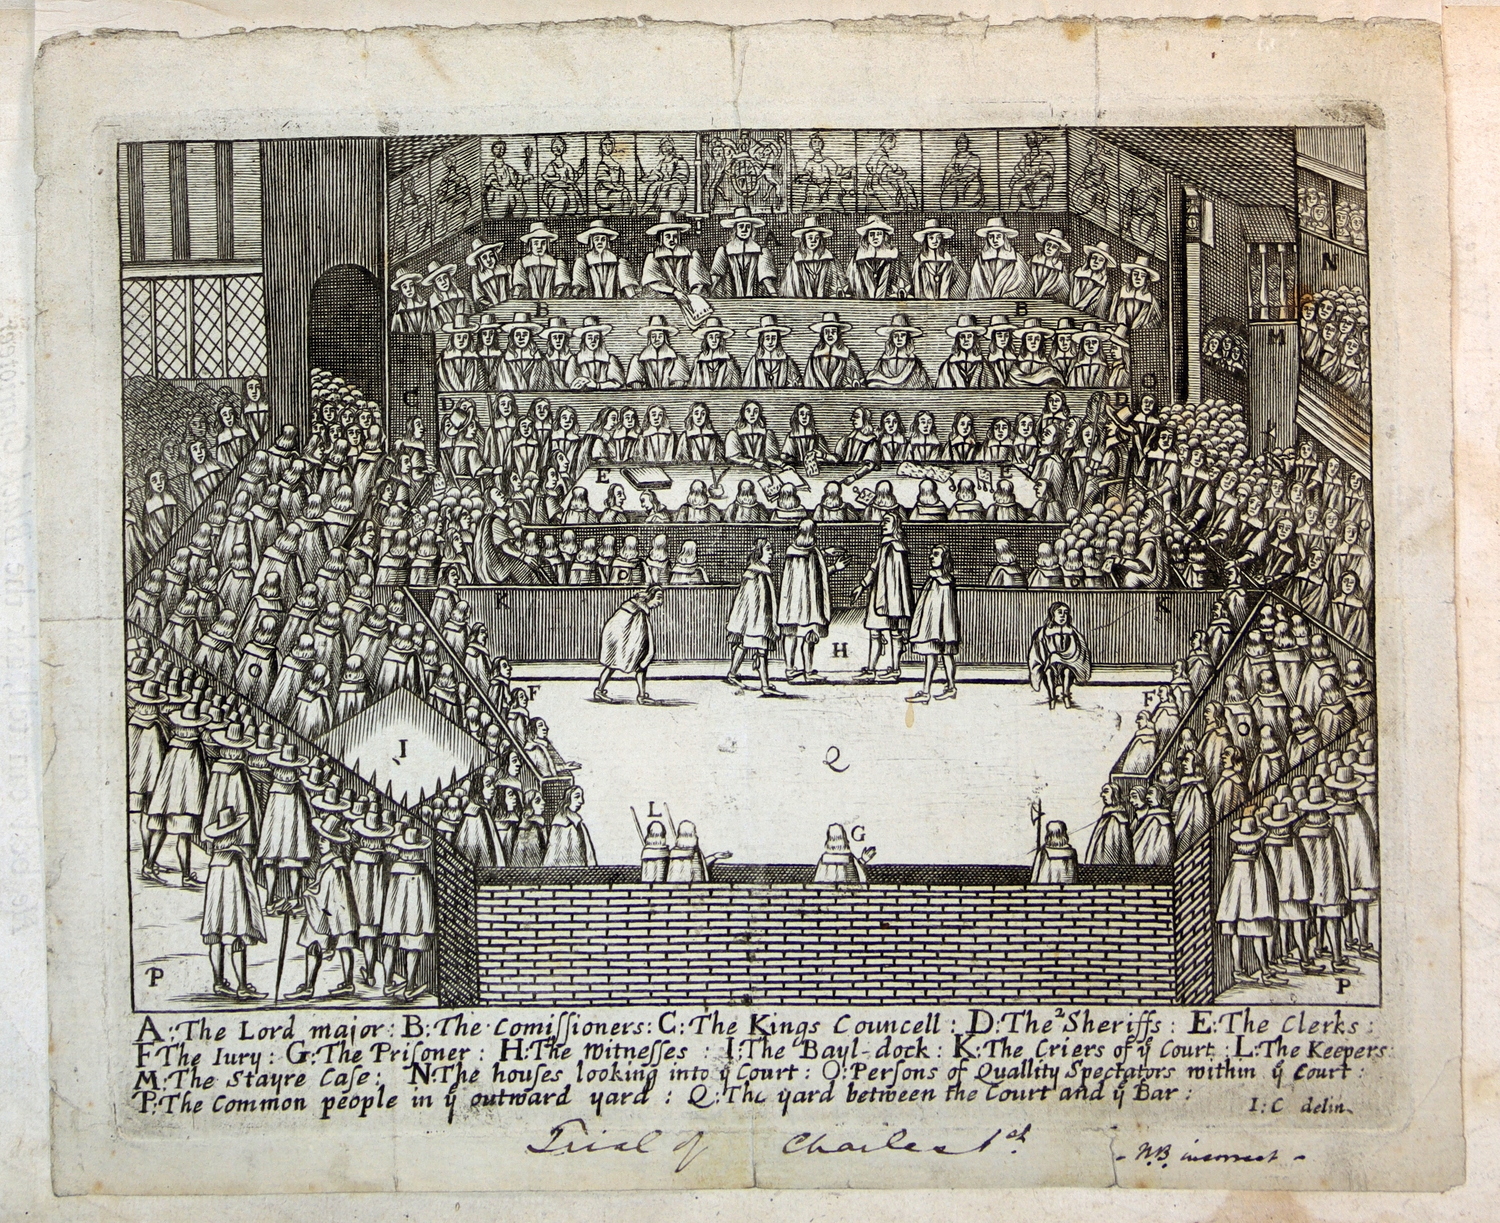 A
B
B
N
M
C
D
D
O
E
E
P
K
K
H
F
F
O
O
I
Q
L
G
P
P
A: The Lord major: B: The Comiſſioners: C: The Kings Councell: D: The 2 Sheriffs: E: The Clerks:
F: The Iury: G: The Priſoner: H: The witneſſes: I: The Bayl-dock: K: The Criers of yͤ Court: L: The Keepers:
M: The Stayre Caſe: N: The houſes looking into yͤ Court: O: Perſons of Quallity Spectators within yͤ Court:
P: The Common people in yͤ outward yard: Q: The yard between the Court and yͤ Bar:
I: C delin.
Trial of Charles 1st.
- N.B. incorrect -